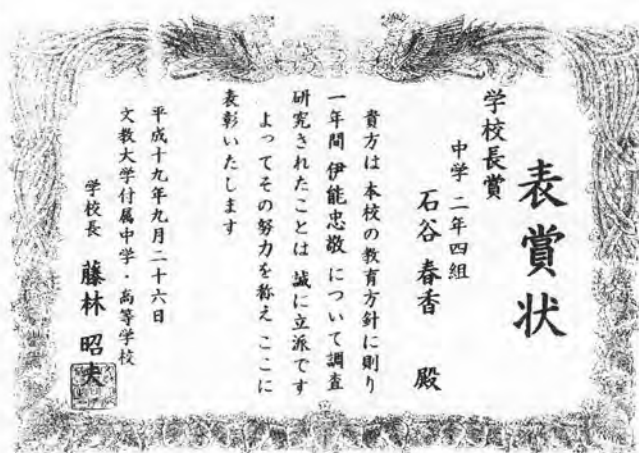 表賞状
学校長賞
中学 二年四組
石谷 春香 殿
貴方は 本校の教育方針に則り
一年間 伊能忠敬 について調査
研究されたことは 誠に立派です
よってその努力を称え ここに
表彰いたします
平成十九年九月二十六日
文教大学付属中学・高等学校
学校長 藤林 昭夫